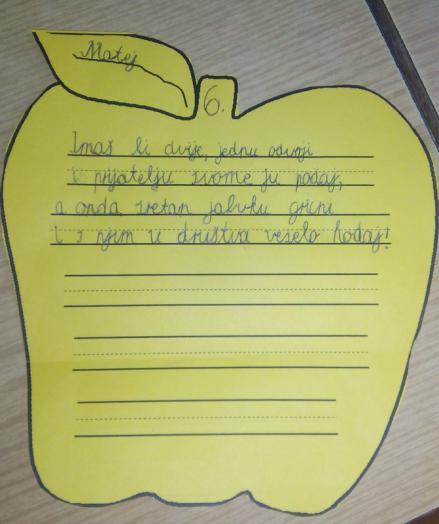 Matej
6.
Imaš li dvije, jednu odvoji
i prijatelju svome ju podaj,
a onda sretan jabuku grizni
i s njim u društvu veselo hodaj!